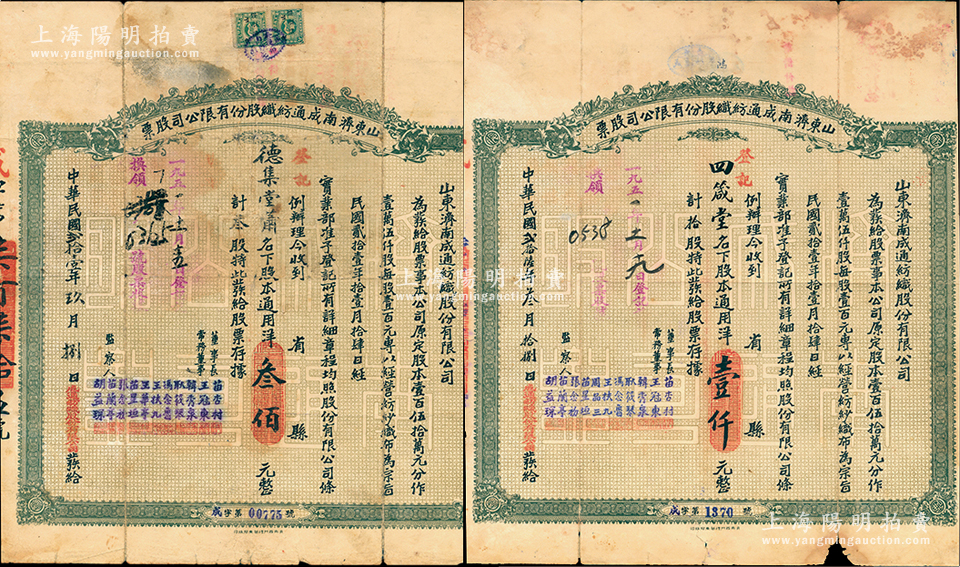 上海陽明拍賣
www.yangmingauction.com
山東濟南成通紡織股份有限公司股票
山東濟南成通紡織股份有限公司
為發給股票事本公司原定股本壹百伍拾萬元分作
壹萬伍仟股每股壹百元專以經營紡紗織布為宗旨
民國貳拾壹年拾壹月拾肆日經
實業部准予登記所有詳細章程均照股份有限公司條
例辦理今收到 省 縣
登記
德集堂蕭名下股本通用洋叁佰元整
計叁股持此發給股票存據
董事長
常務董事
監察人
苗杏村
王冠東
韓秀泉
中華民國貳拾壹年玖月捌日
發給
成字第00775號
山東濟南成通紡織股份有限公司股票
山東濟南成通紡織股份有限公司
為發給股票事本公司原定股本壹百伍拾萬元分作
壹萬伍仟股每股壹百元專以經營紡紗織布為宗旨
民國貳拾壹年拾壹月拾肆日經
實業部准予登記所有詳細章程均照股份有限公司條
例辦理今收到 省 縣
登記
四箴堂名下股本通用洋壹仟元整
計拾股持此發給股票存據
換領
0538
董事長
常務董事
監察人
苗杏村
王冠東
韓秀泉
發給
成字第1370號
上海陽明拍賣
www.yangmingauction.com